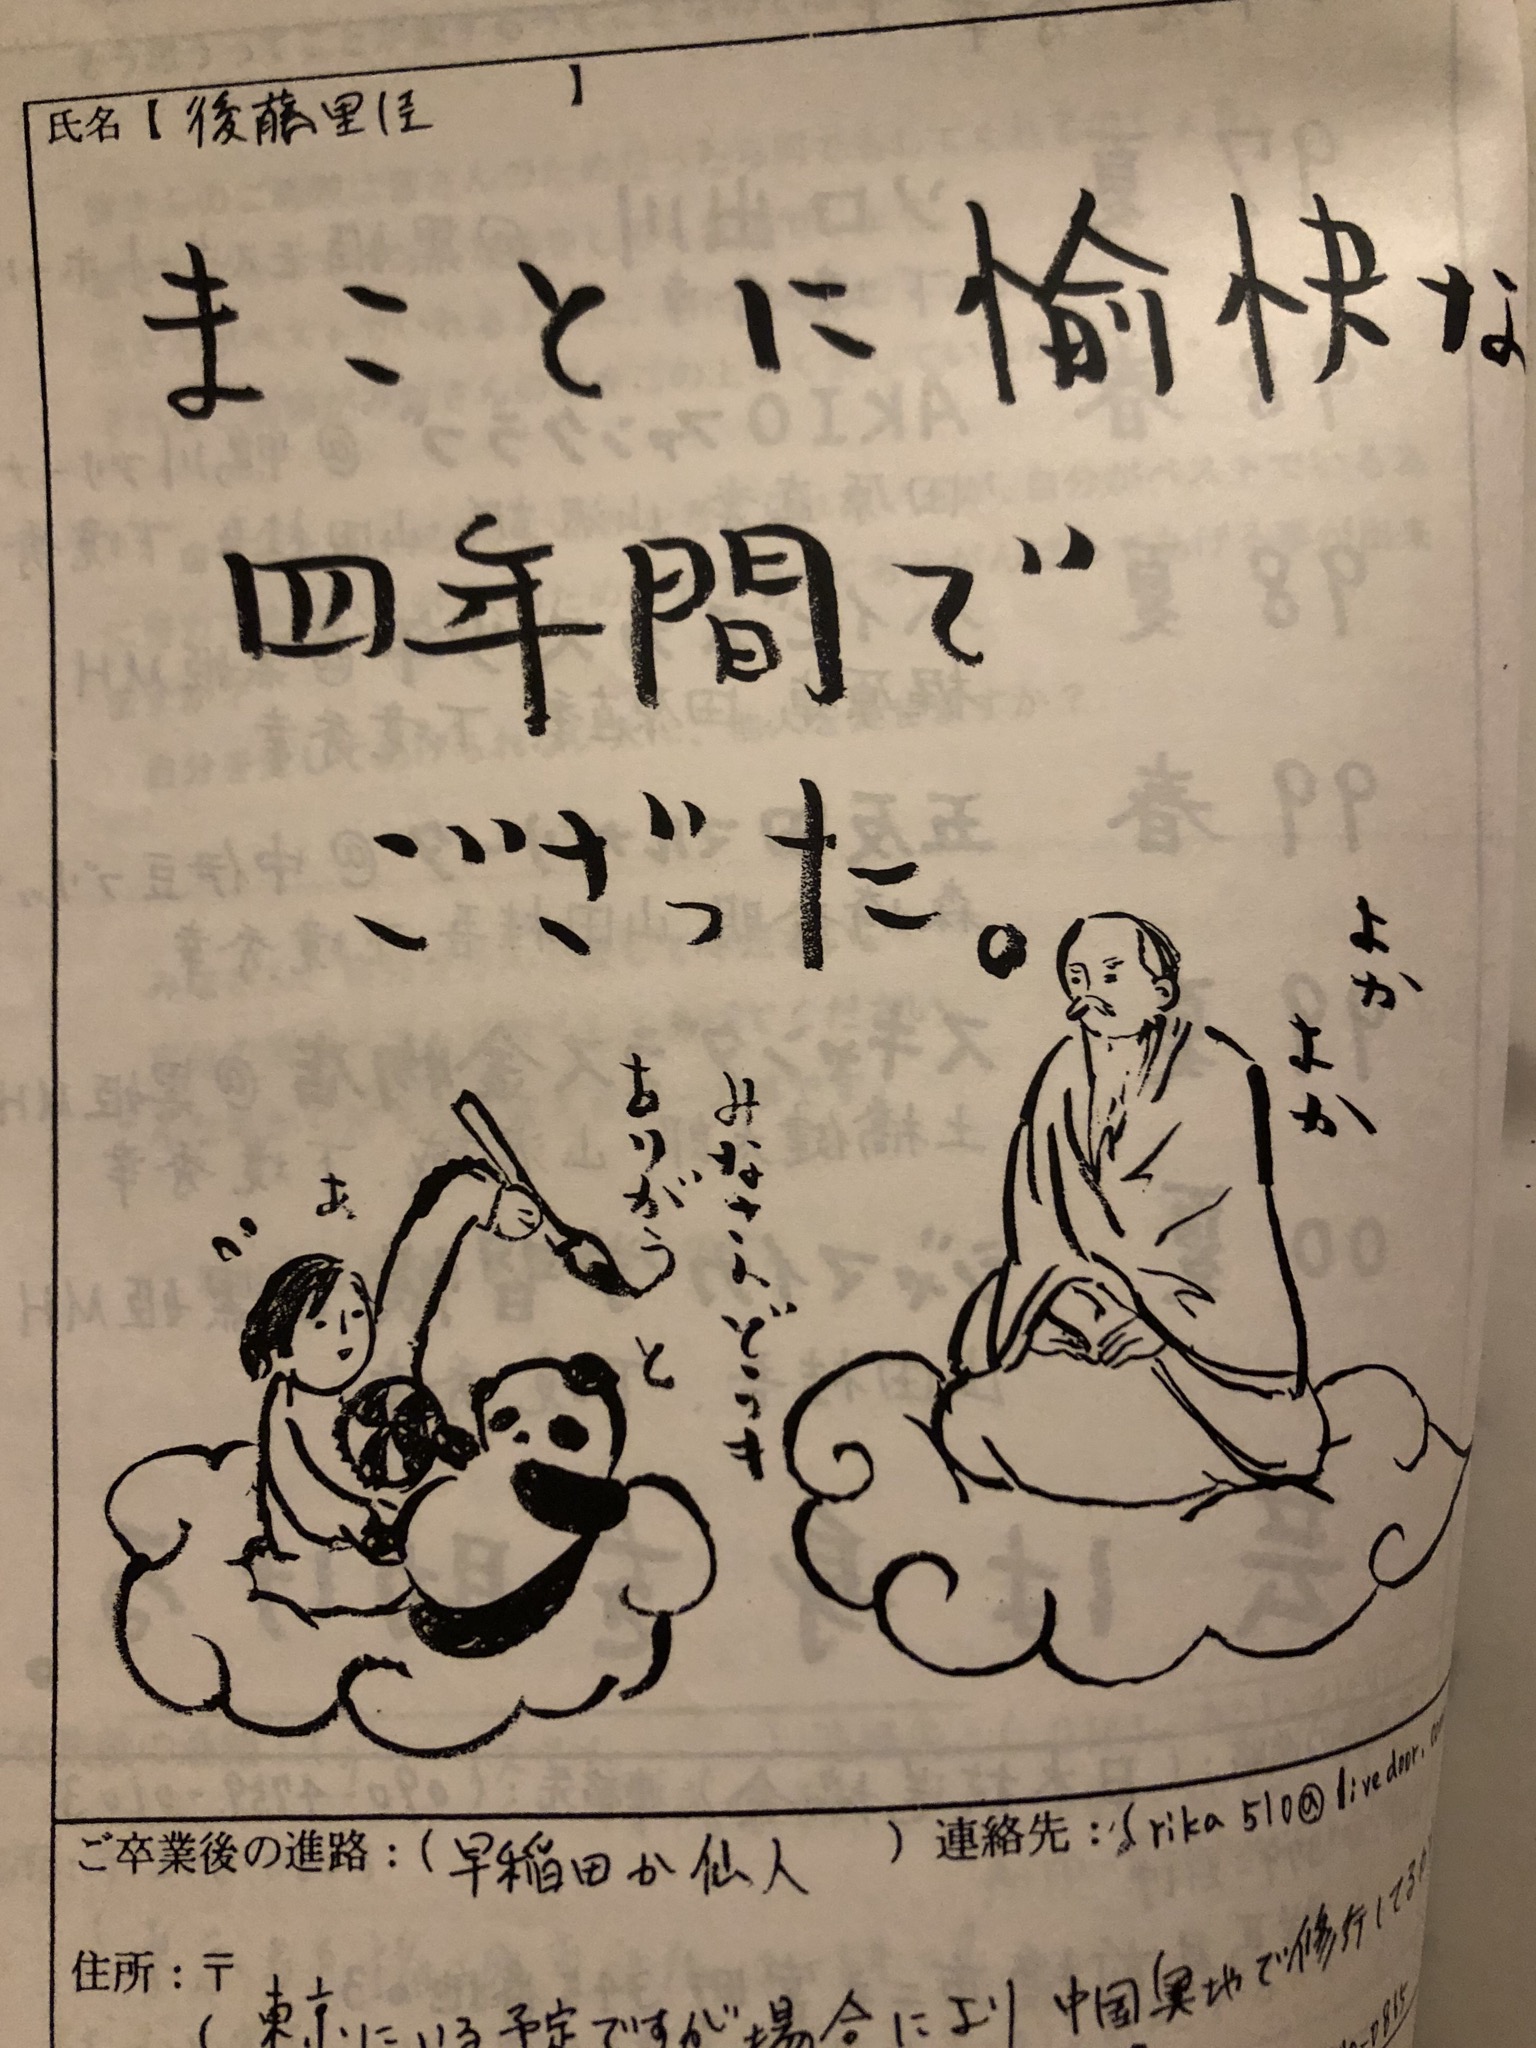 氏名【後藤里佳】
まことに愉快な
四年間で
ござった。
よか
よか
みなさんどうも
ありがう
と
あ
ご卒業後の進路：(早稲田か仙人) 連絡先：rika510@livedoor.
住所：〒
(東京にいる予定ですが場合により中国奥地で修行してるか